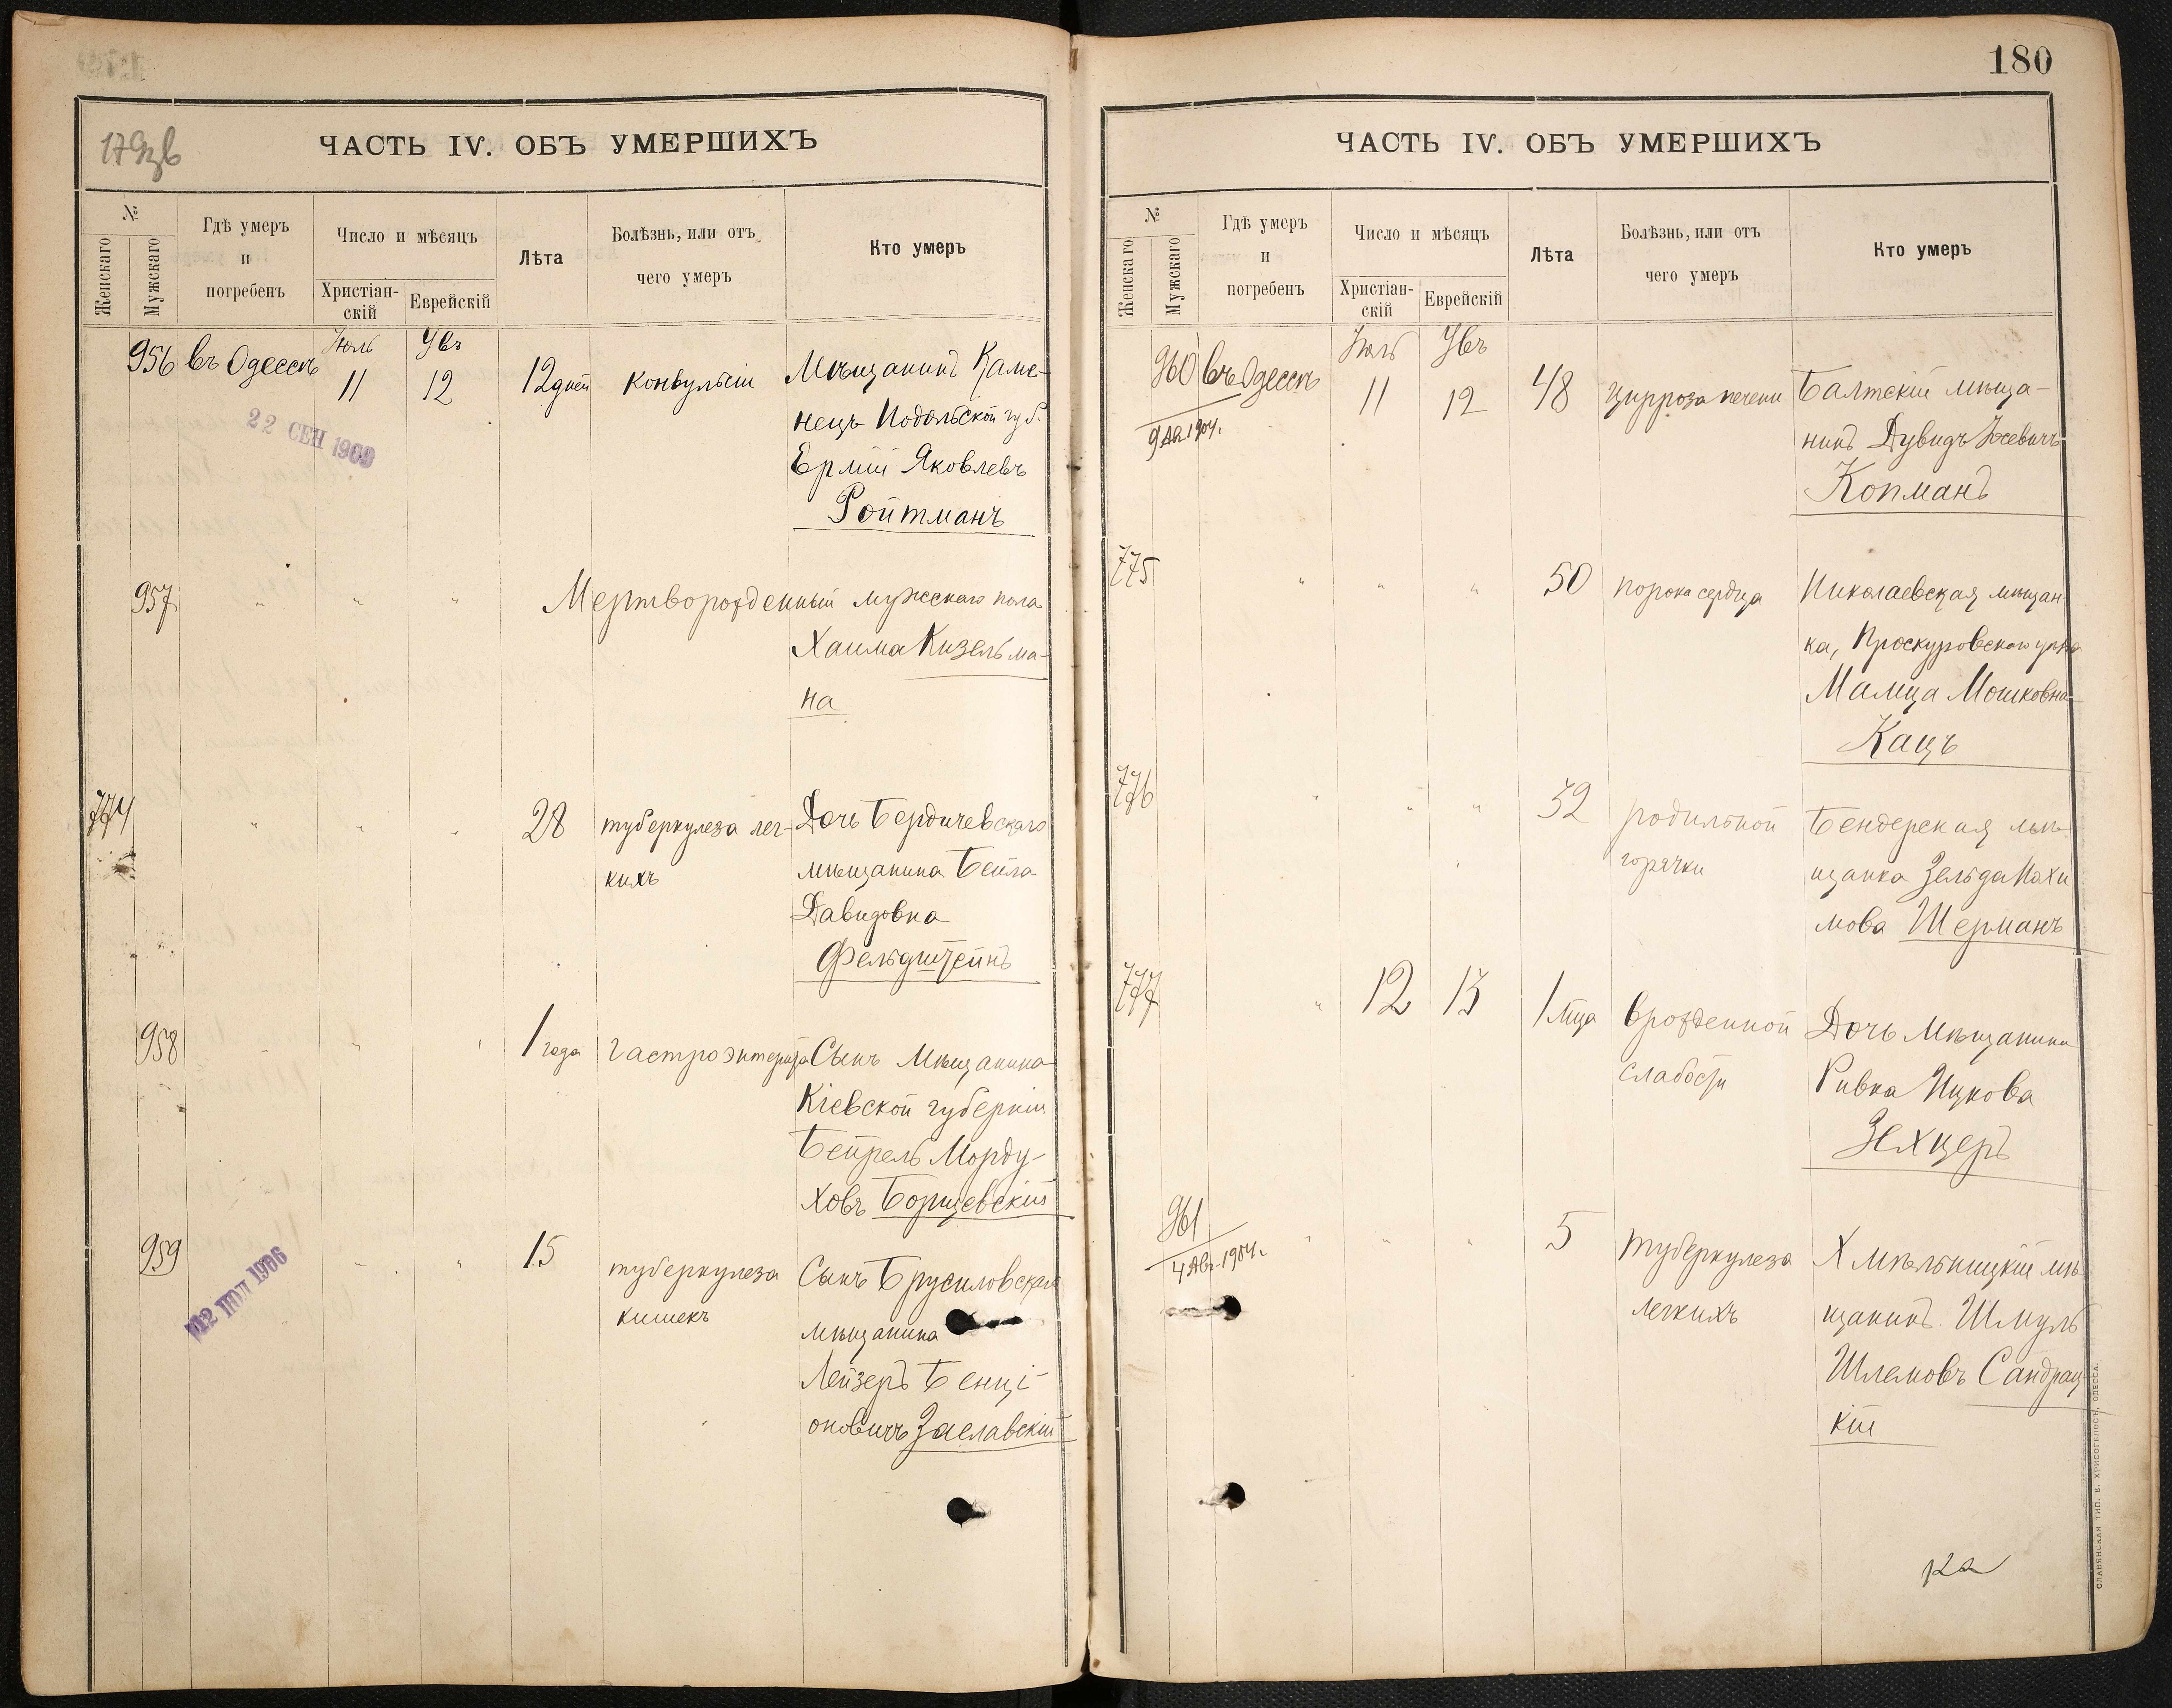 179зв
ЧАСТЬ IV. ОБЪ УМЕРШИХЪ
№
Женскаго
Мужскаго
Гдѣ умеръ
и
погребенъ
Число и мѣсяцъ
Христіан-
скій
Еврейскій
Лѣта
Болѣзнь, или отъ
чего умеръ
Кто умеръ
956 въ Одессѣ Іюль 11 Увъ 12 12 дней конвульсіи Мѣщанинъ Каме-
нецъ Подольской губ.
Ермій Яковлевъ
Ройтманъ
22 СЕН 1909
957 " " " Мертворожденный мужскаго пола
Хаима Кизельма-
на
774 " " " 28 туберкулеза лег- Дочь Бердичевскаго
кихъ мѣщанина Бейла
Давидовна
Фельдштейнъ
958 " " " 1 года гастроэнтерита Сынъ Мѣщанина
Кіевской губерніи
Бейрель Морду-
ховъ Борщевскій
959 " " " 15 туберкулеза Сынъ Брусиловскаго
кишекъ мѣщанина
Лейзеръ Бенці-
оновичъ Заславскій
12 ІЮЛ 1906
180
ЧАСТЬ IV. ОБЪ УМЕРШИХЪ
№
Женскаго
Мужскаго
Гдѣ умеръ
и
погребенъ
Число и мѣсяцъ
Христіан-
скій
Еврейскій
Лѣта
Болѣзнь, или отъ
чего умеръ
Кто умеръ
960 въ Одессѣ Іюль 11 Увъ 12 48 цирроза печени Балтскій мѣща-
1904 г. нинъ Дувидъ
Копманъ
775 " " " 50 порока сердца Николаевская мѣщан-
ка, Проскуровского уѣзда
Малца Мошковна
Кацъ
776 " " " 32 родильной Бендерская мѣ-
горячки щанка Зельда Нахи
мова Шерманъ
777 " 12 13 1 мца врожденной Дочь Мѣщанина
слабости Ривка Ицкова
Зехцеръ
961 " " " 5 туберкулеза Хмѣльницкій мѣ-
4 Авг. 1904 г. легкихъ щанинъ Шмуль
Шлемовъ Сандрац-
кій
СЛАВЯНСКАЯ ТИП. Е. ХРИСОГЕЛОСЪ, ОДЕССА.